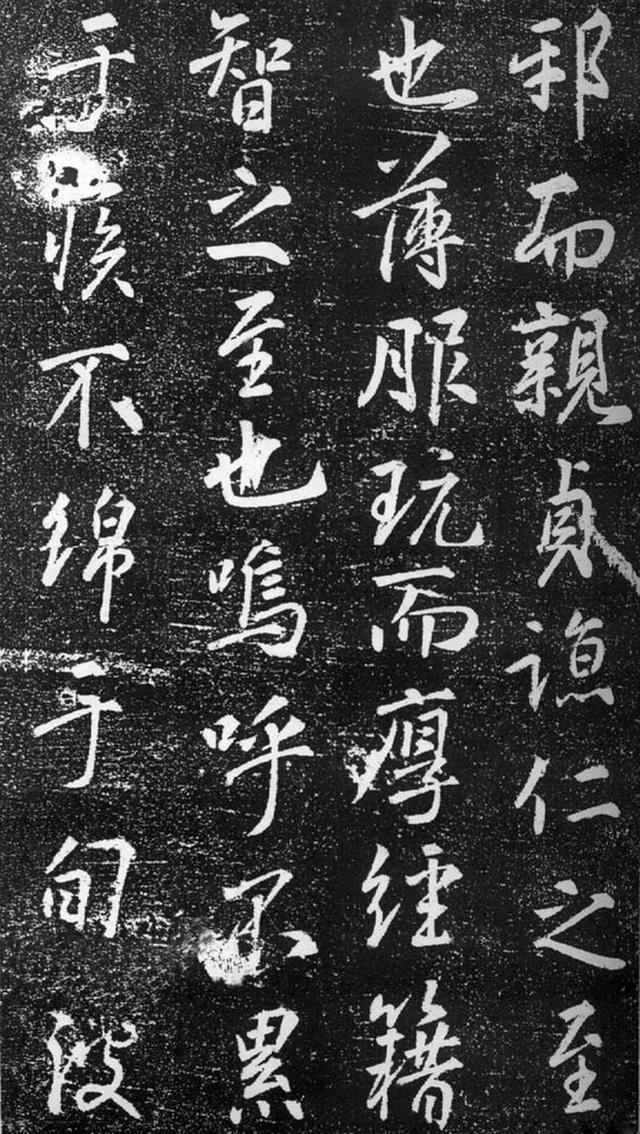 邪而親貞諒仁之至
也薄服玩而厚經籍
智之至也嗚呼不累
于疾不綿于旬没